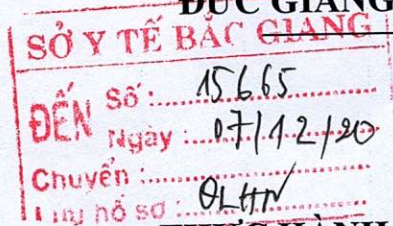 ĐỨC GIANG
SỞ Y TẾ BẮC GIANG
ĐẾN
Số: 15665
Ngày: 07/12/20
Chuyển:
Lưu hồ sơ: QLHN
THỰC HÀNH